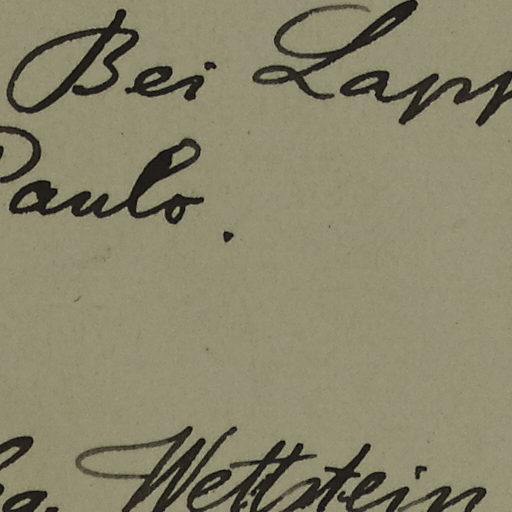 Bei Lapp
Paulo.
Wettstein